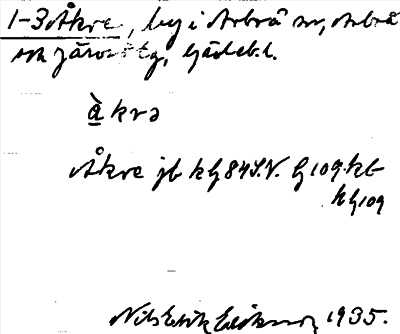 1-3 Åkre, by i Arbrå sn, Arbrå
och Järvsö tg, Gävlebl.
àkrə
Åkre jb kb 84 S.V. G 109 kb
kb 109
Nils Erik Eriksson 1935.